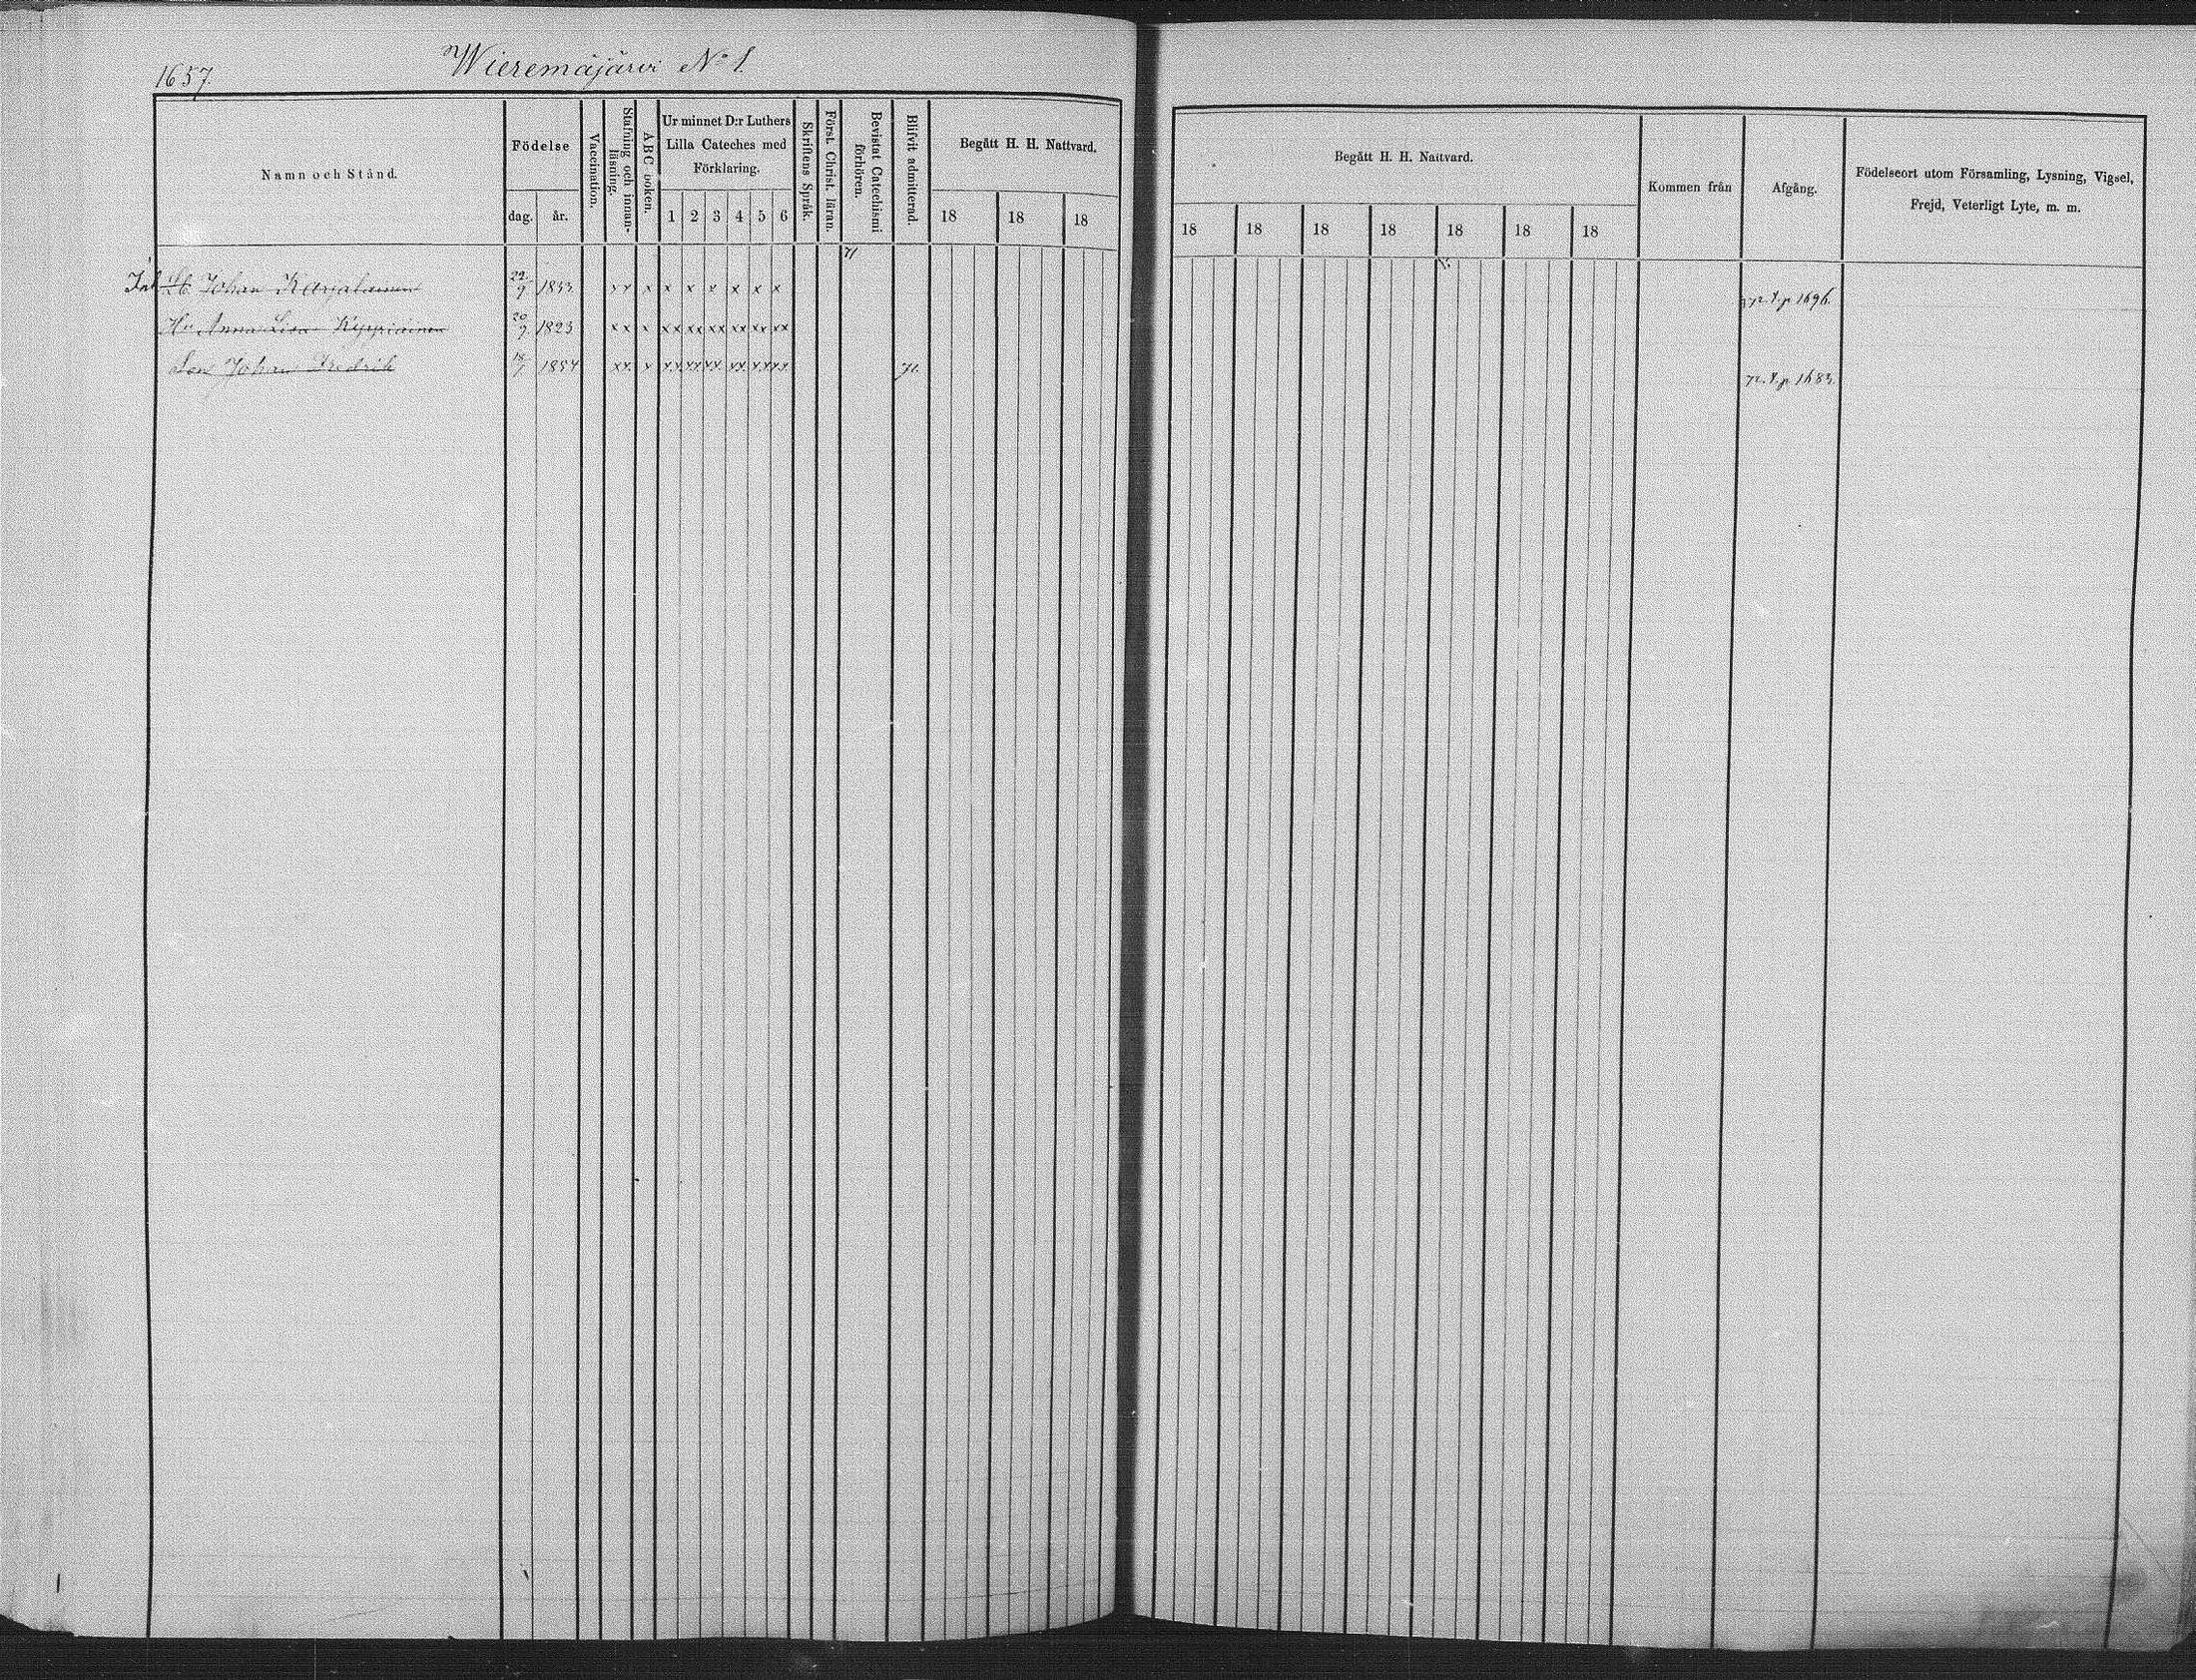 1657.
Wieremäjärvi No 1.
Namn och Stånd.
Födelse
dag. år.
Vaccination.
Stafning och innanläsning.
ABC boken.
Ur minnet D:r Luthers
Lilla Cateches med
Förklaring.
1 2 3 4 5 6
Skriftens Språk.
Först. Christ. läran.
Bevistat Catechismi förhören.
Blifvit admitterad.
Begått H. H. Nattvard.
18 18 18
Begått H. H. Nattvard.
18 18 18 18 18 18 18
Kommen från
Afgång.
Födelseort utom Församling, Lysning, Vigsel,
Frejd, Veterligt Lyte, m. m.
71
Inh Johan Karjalainen 22/9 1833 xx x x x x x x x 72. f. p 1696.
Hu Anna Lisa 20/9 1823 xx x xx xx xx xx xx xx
Son Johan Fredrik 18/ 1854 xx x xx xx xx xx xx xx 71. 72. f. p 1683.